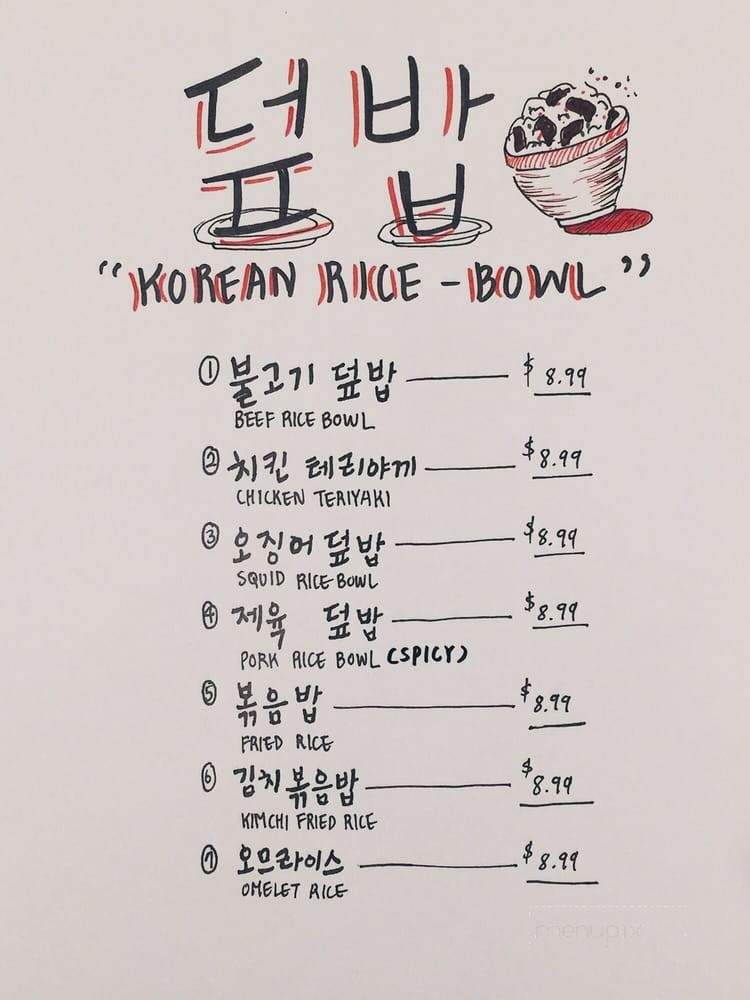 덮밥
"KOREAN RICE-BOWL"
① 불고기 덮밥 $8.99
BEEF RICE BOWL
② 치킨 테리야끼 $8.99
CHICKEN TERIYAKI
③ 오징어 덮밥 $8.99
SQUID RICE BOWL
④ 제육 덮밥 $8.99
PORK RICE BOWL (SPICY)
⑤ 볶음밥 $8.99
FRIED RICE
⑥ 김치볶음밥 $8.99
KIMCHI FRIED RICE
⑦ 오므라이스 $8.99
OMELET RICE
menupix